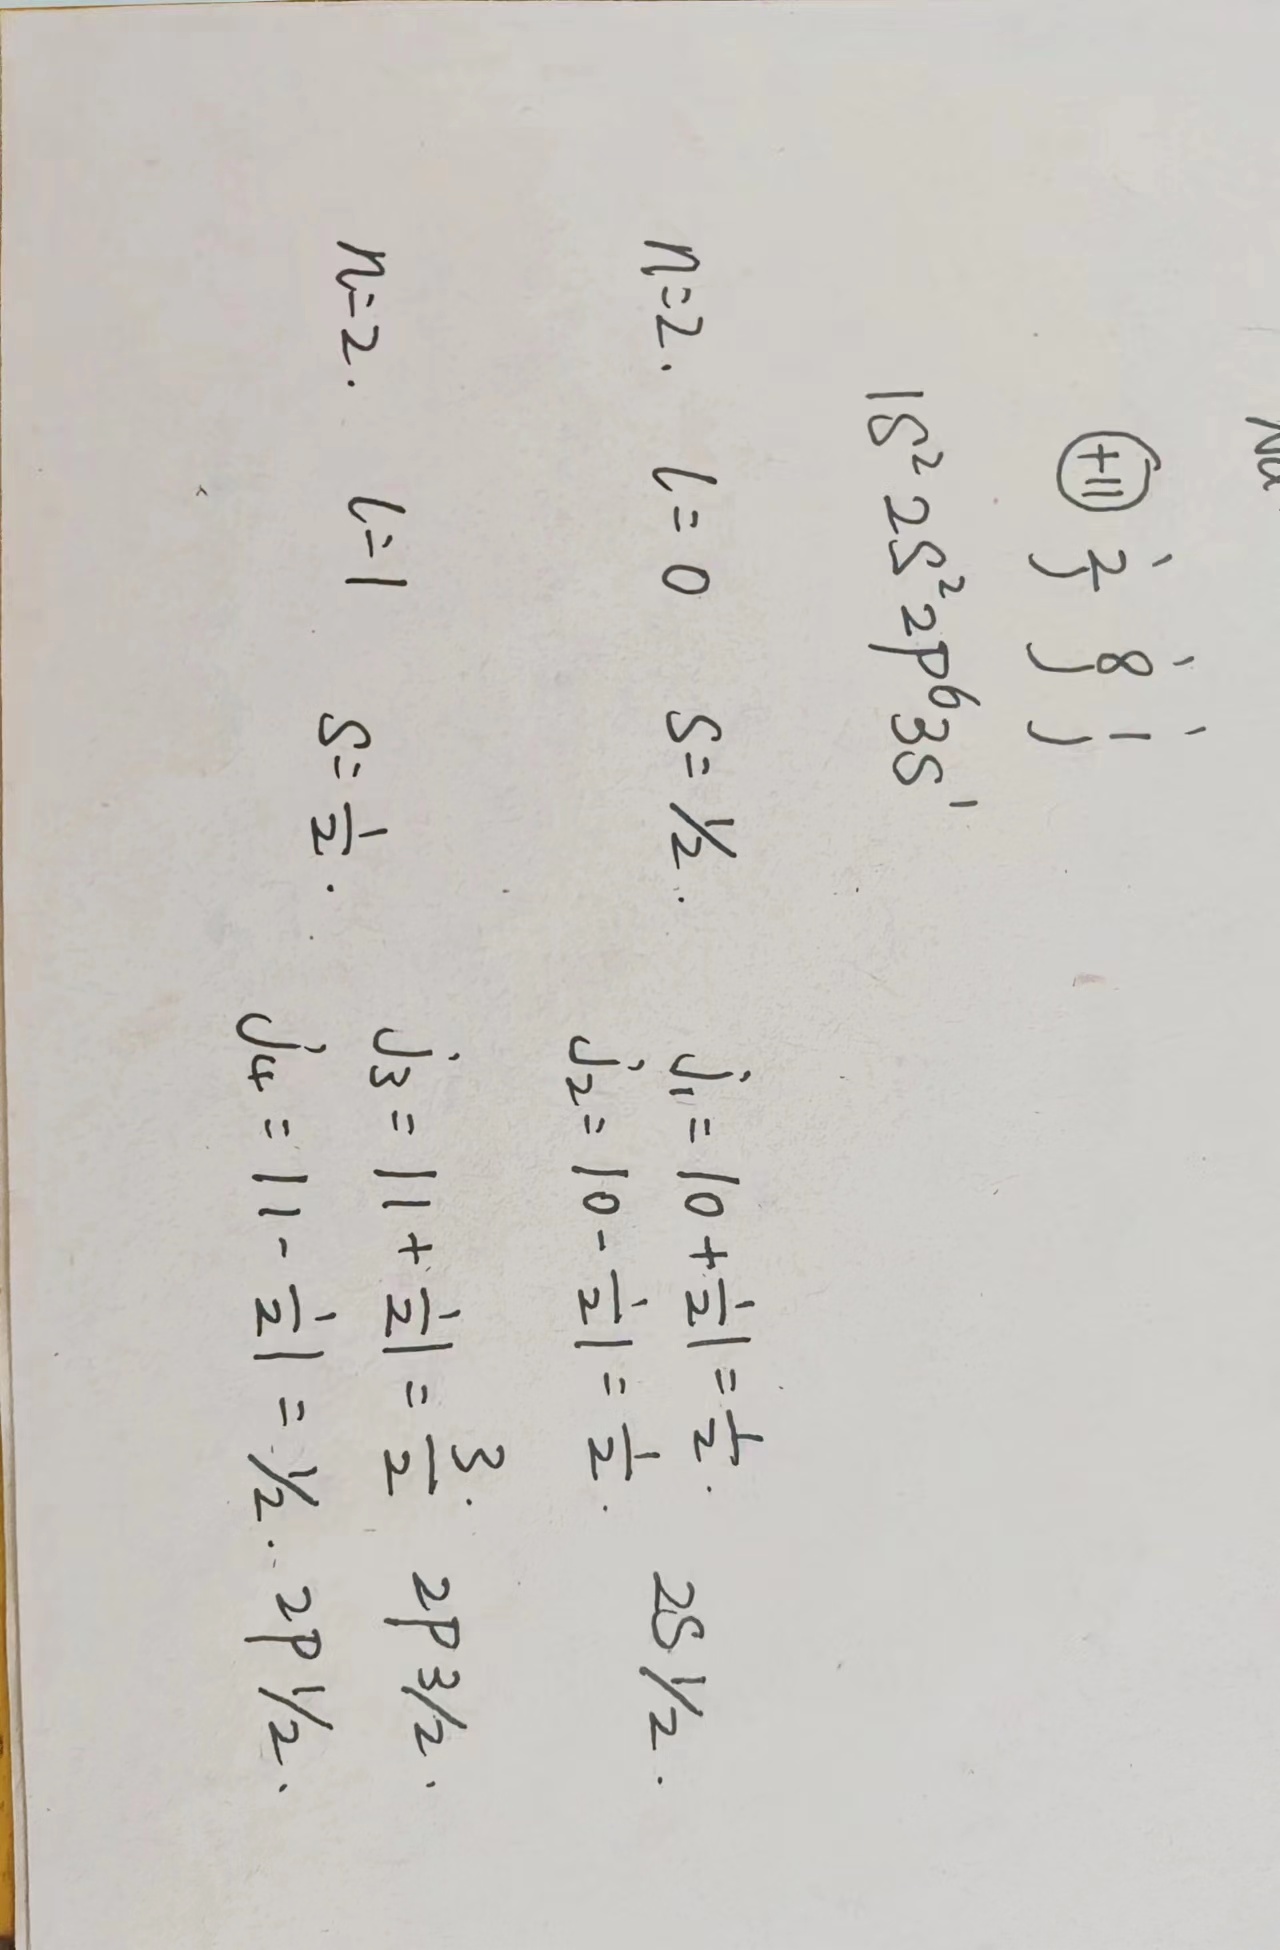 Na
+11 2 8 1
1S² 2S² 2P⁶ 3S¹
n=2. l=0 S=1/2. j₁=|0+1/2|=1/2.
j₂=|0-1/2|=1/2. 2S 1/2.
n=2. l=1 S=1/2. j₃=|1+1/2|=3/2. 2P 3/2.
j₄=|1-1/2|=1/2. 2P 1/2.